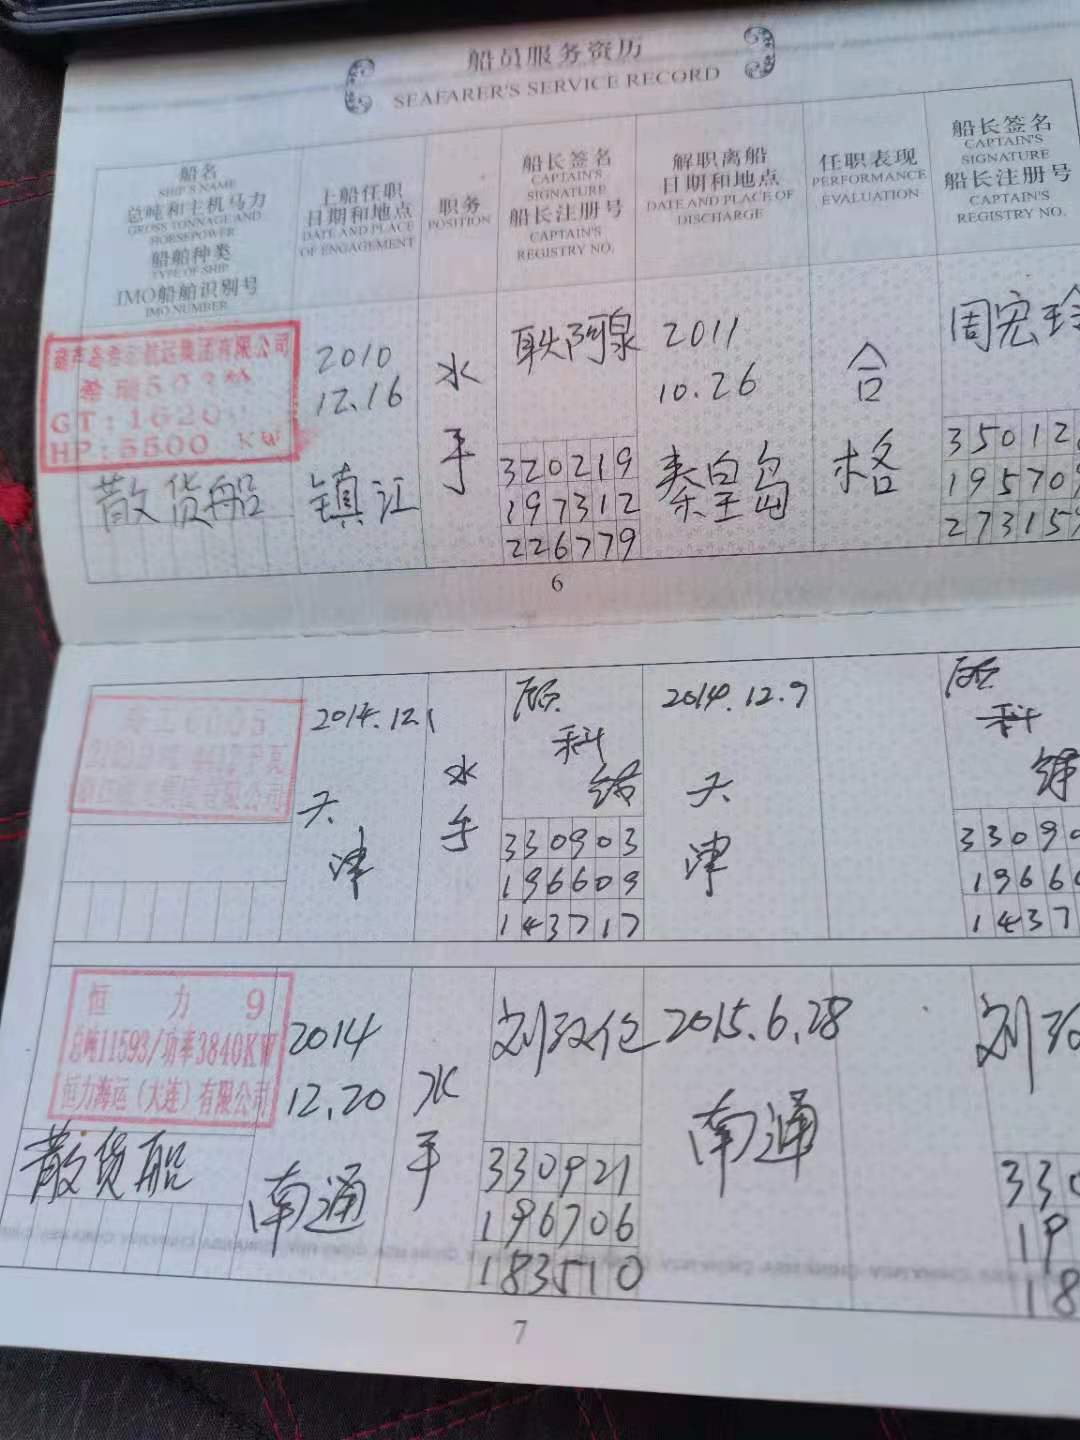 船员服务资历
SEAFARER'S SERVICE RECORD
船名
SHIP'S NAME
总吨和主机马力
GROSS TONNAGE AND
HORSEPOWER
船舶种类
TYPE OF SHIP
IMO船舶识别号
IMO NUMBER
上船任职
日期和地点
DATE AND PLACE
OF ENGAGEMENT
职务
POSITION
船长签名
CAPTAIN'S
SIGNATURE
船长注册号
CAPTAIN'S
REGISTRY NO.
解职离船
日期和地点
DATE AND PLACE OF
DISCHARGE
任职表现
PERFORMANCE
EVALUATION
船长签名
CAPTAIN'S
SIGNATURE
船长注册号
CAPTAIN'S
REGISTRY NO.
航运集团有限公司
GT:1620
HP:5500 KW
散货船
2010
12.16
镇江
水
手
耿阿泉
320219
197312
226779
2011
10.26
秦皇岛
合
格
周宏玲
35012
195709
273159
6
6005
有限公司
2014.12.1
天
津
水
手
科
330903
196609
143717
2014.12.9
天
津
科
33090
1966
1437
恒 力 9
总吨11593/功率3840KW
恒力海运(大连)有限公司
散货船
2014
12.20
南通
水
手
刘
330921
196706
183510
2015.6.28
南通
刘
330
19
18
7